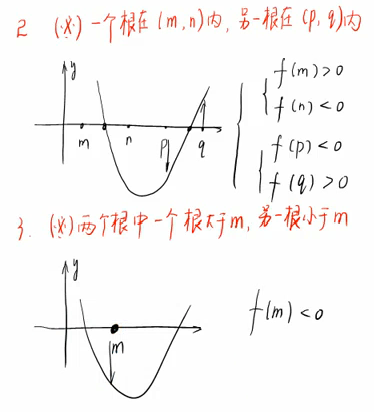 2 (※) 一个根在(m,n)内,另一根在(p,q)内
y
m n p q
f(m)>0
f(n)<0
f(p)<0
f(q)>0
3. (※)两个根中一个根大于m,另一根小于m
y
m
f(m)<0